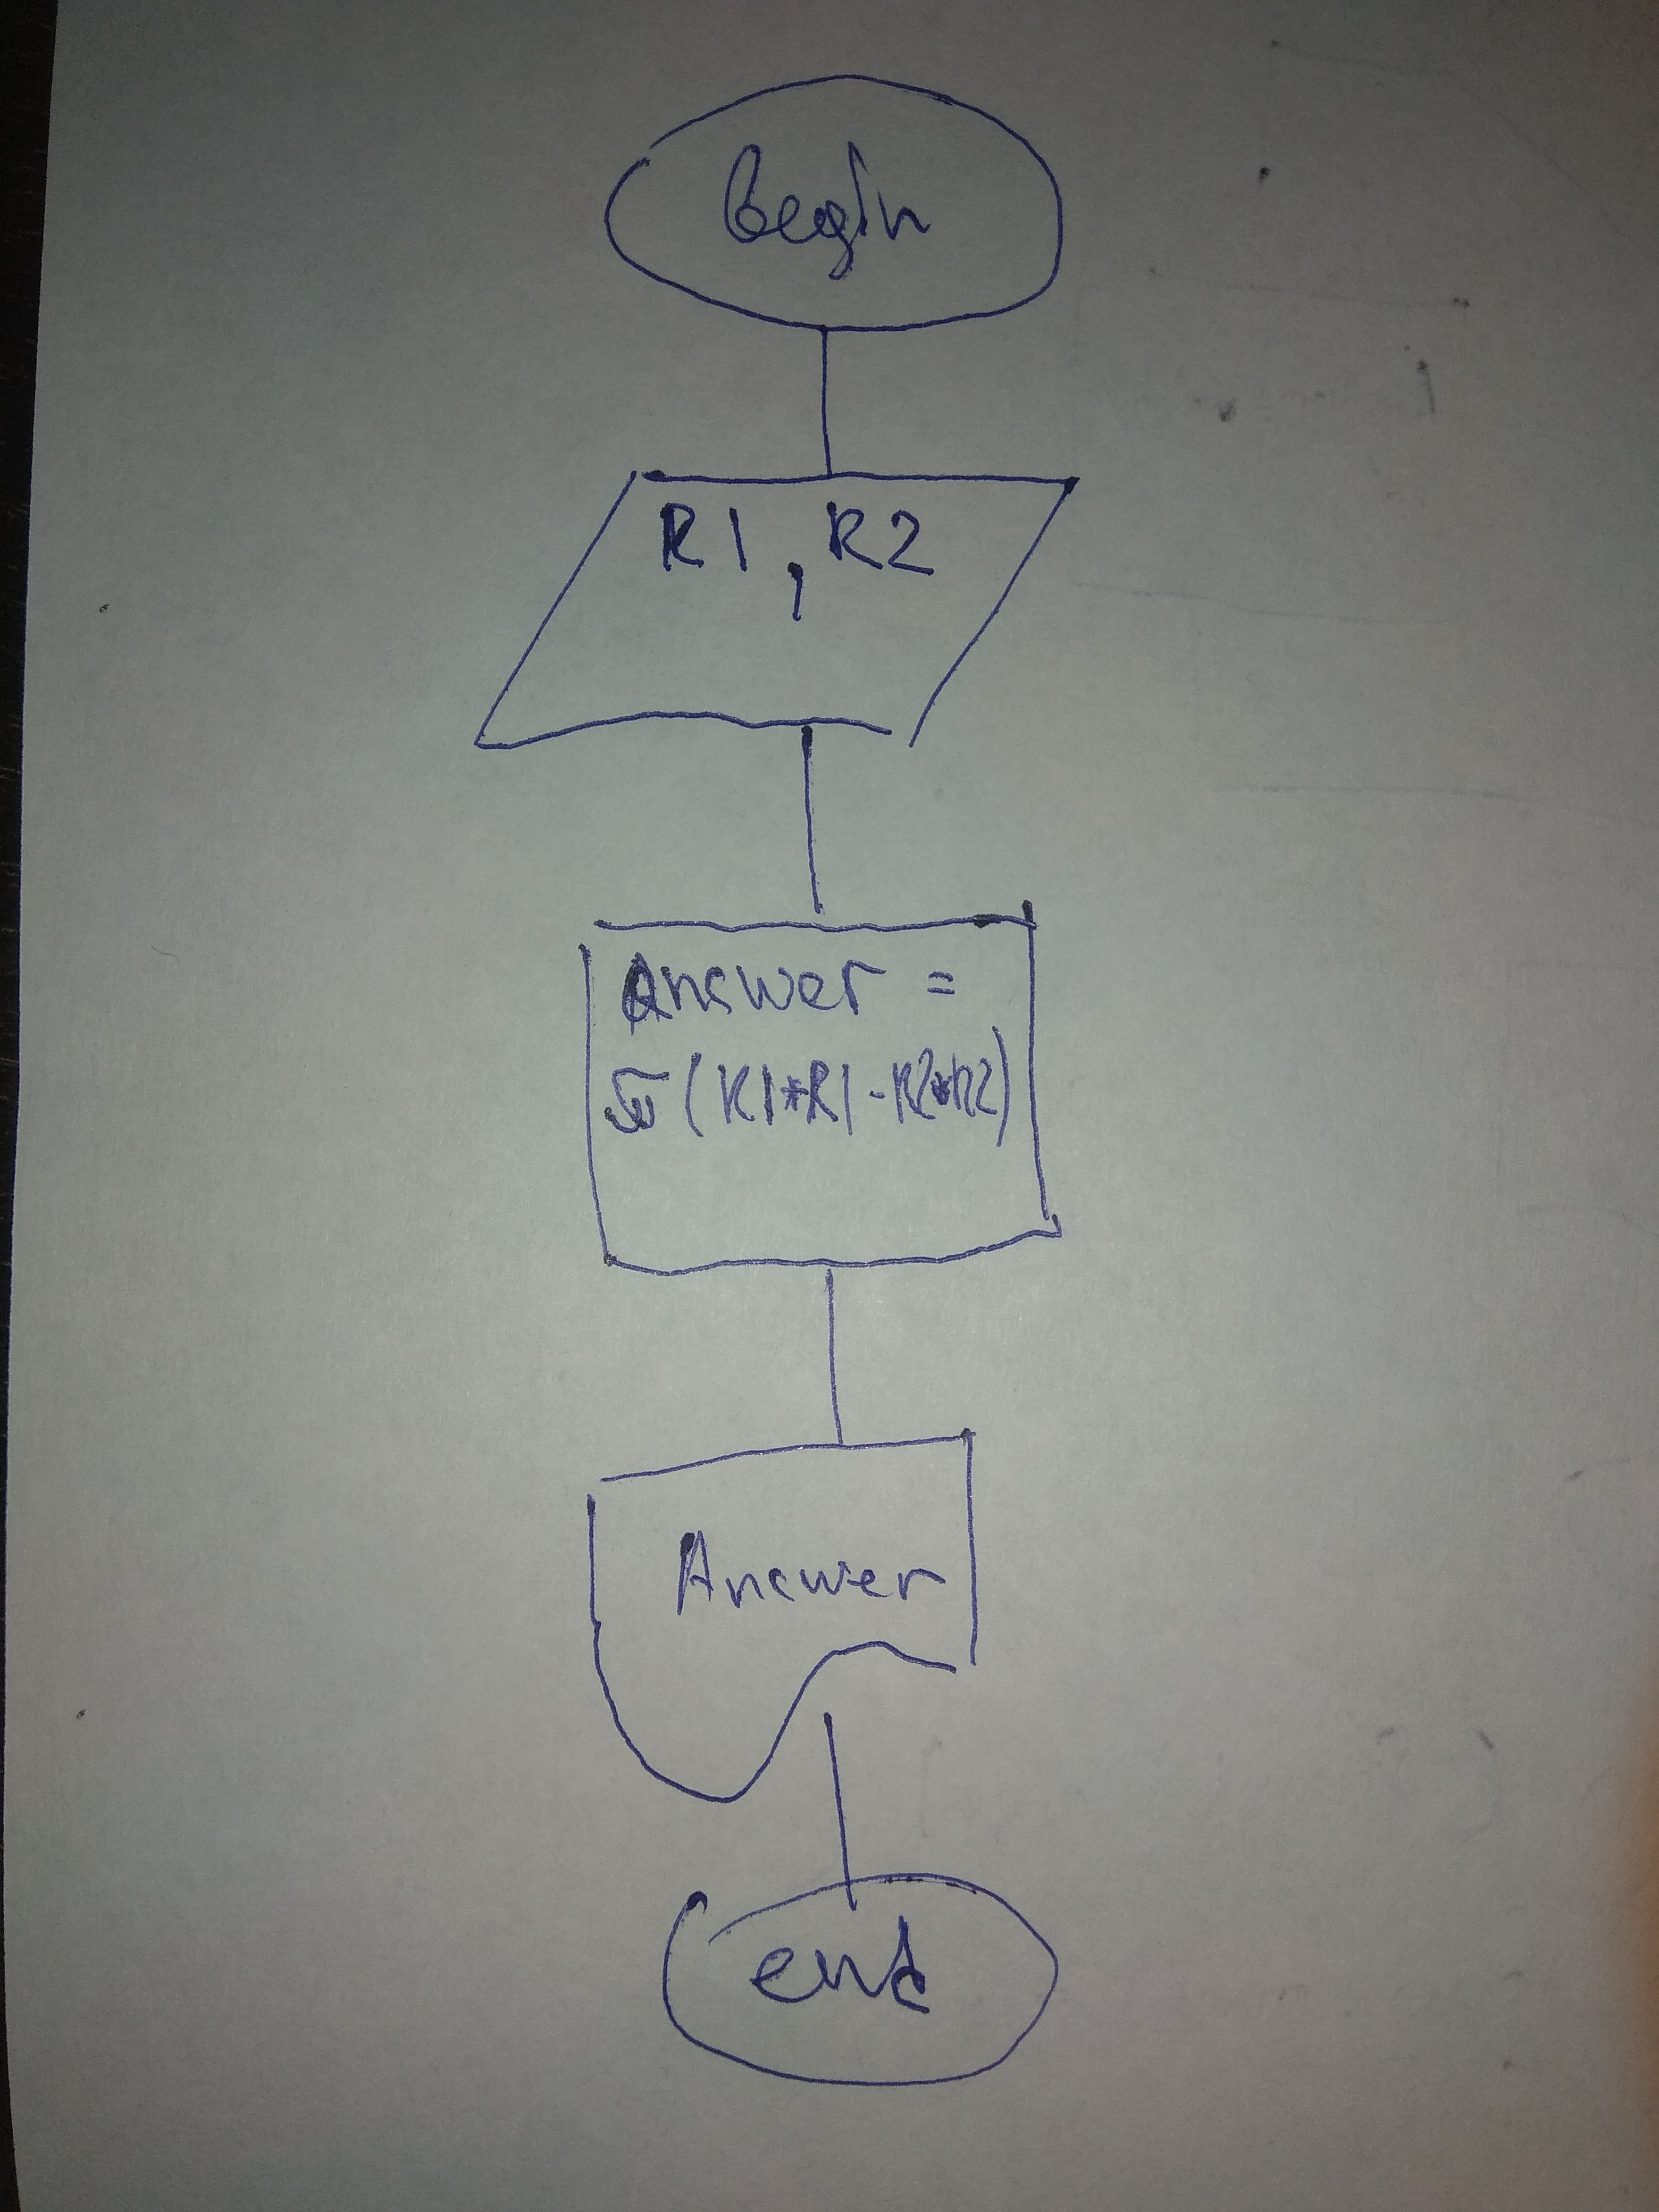 Begin
R1, R2
Answer =
(R1*R1-R2*R2)
Answer
end